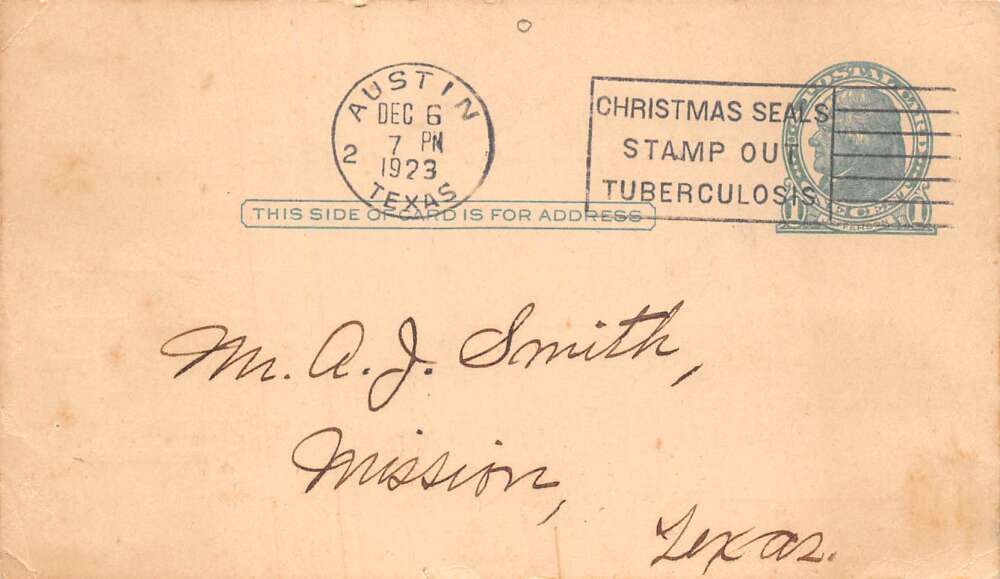 AUSTIN
DEC 6
7 PM
1923
2
TEXAS
CHRISTMAS SEALS
STAMP OUT
TUBERCULOSIS
POSTAL CARD
1 ONE CENT 1
JEFFERSON
THIS SIDE OF CARD IS FOR ADDRESS
Mr. A. J. Smith,
Mission,
Texas.